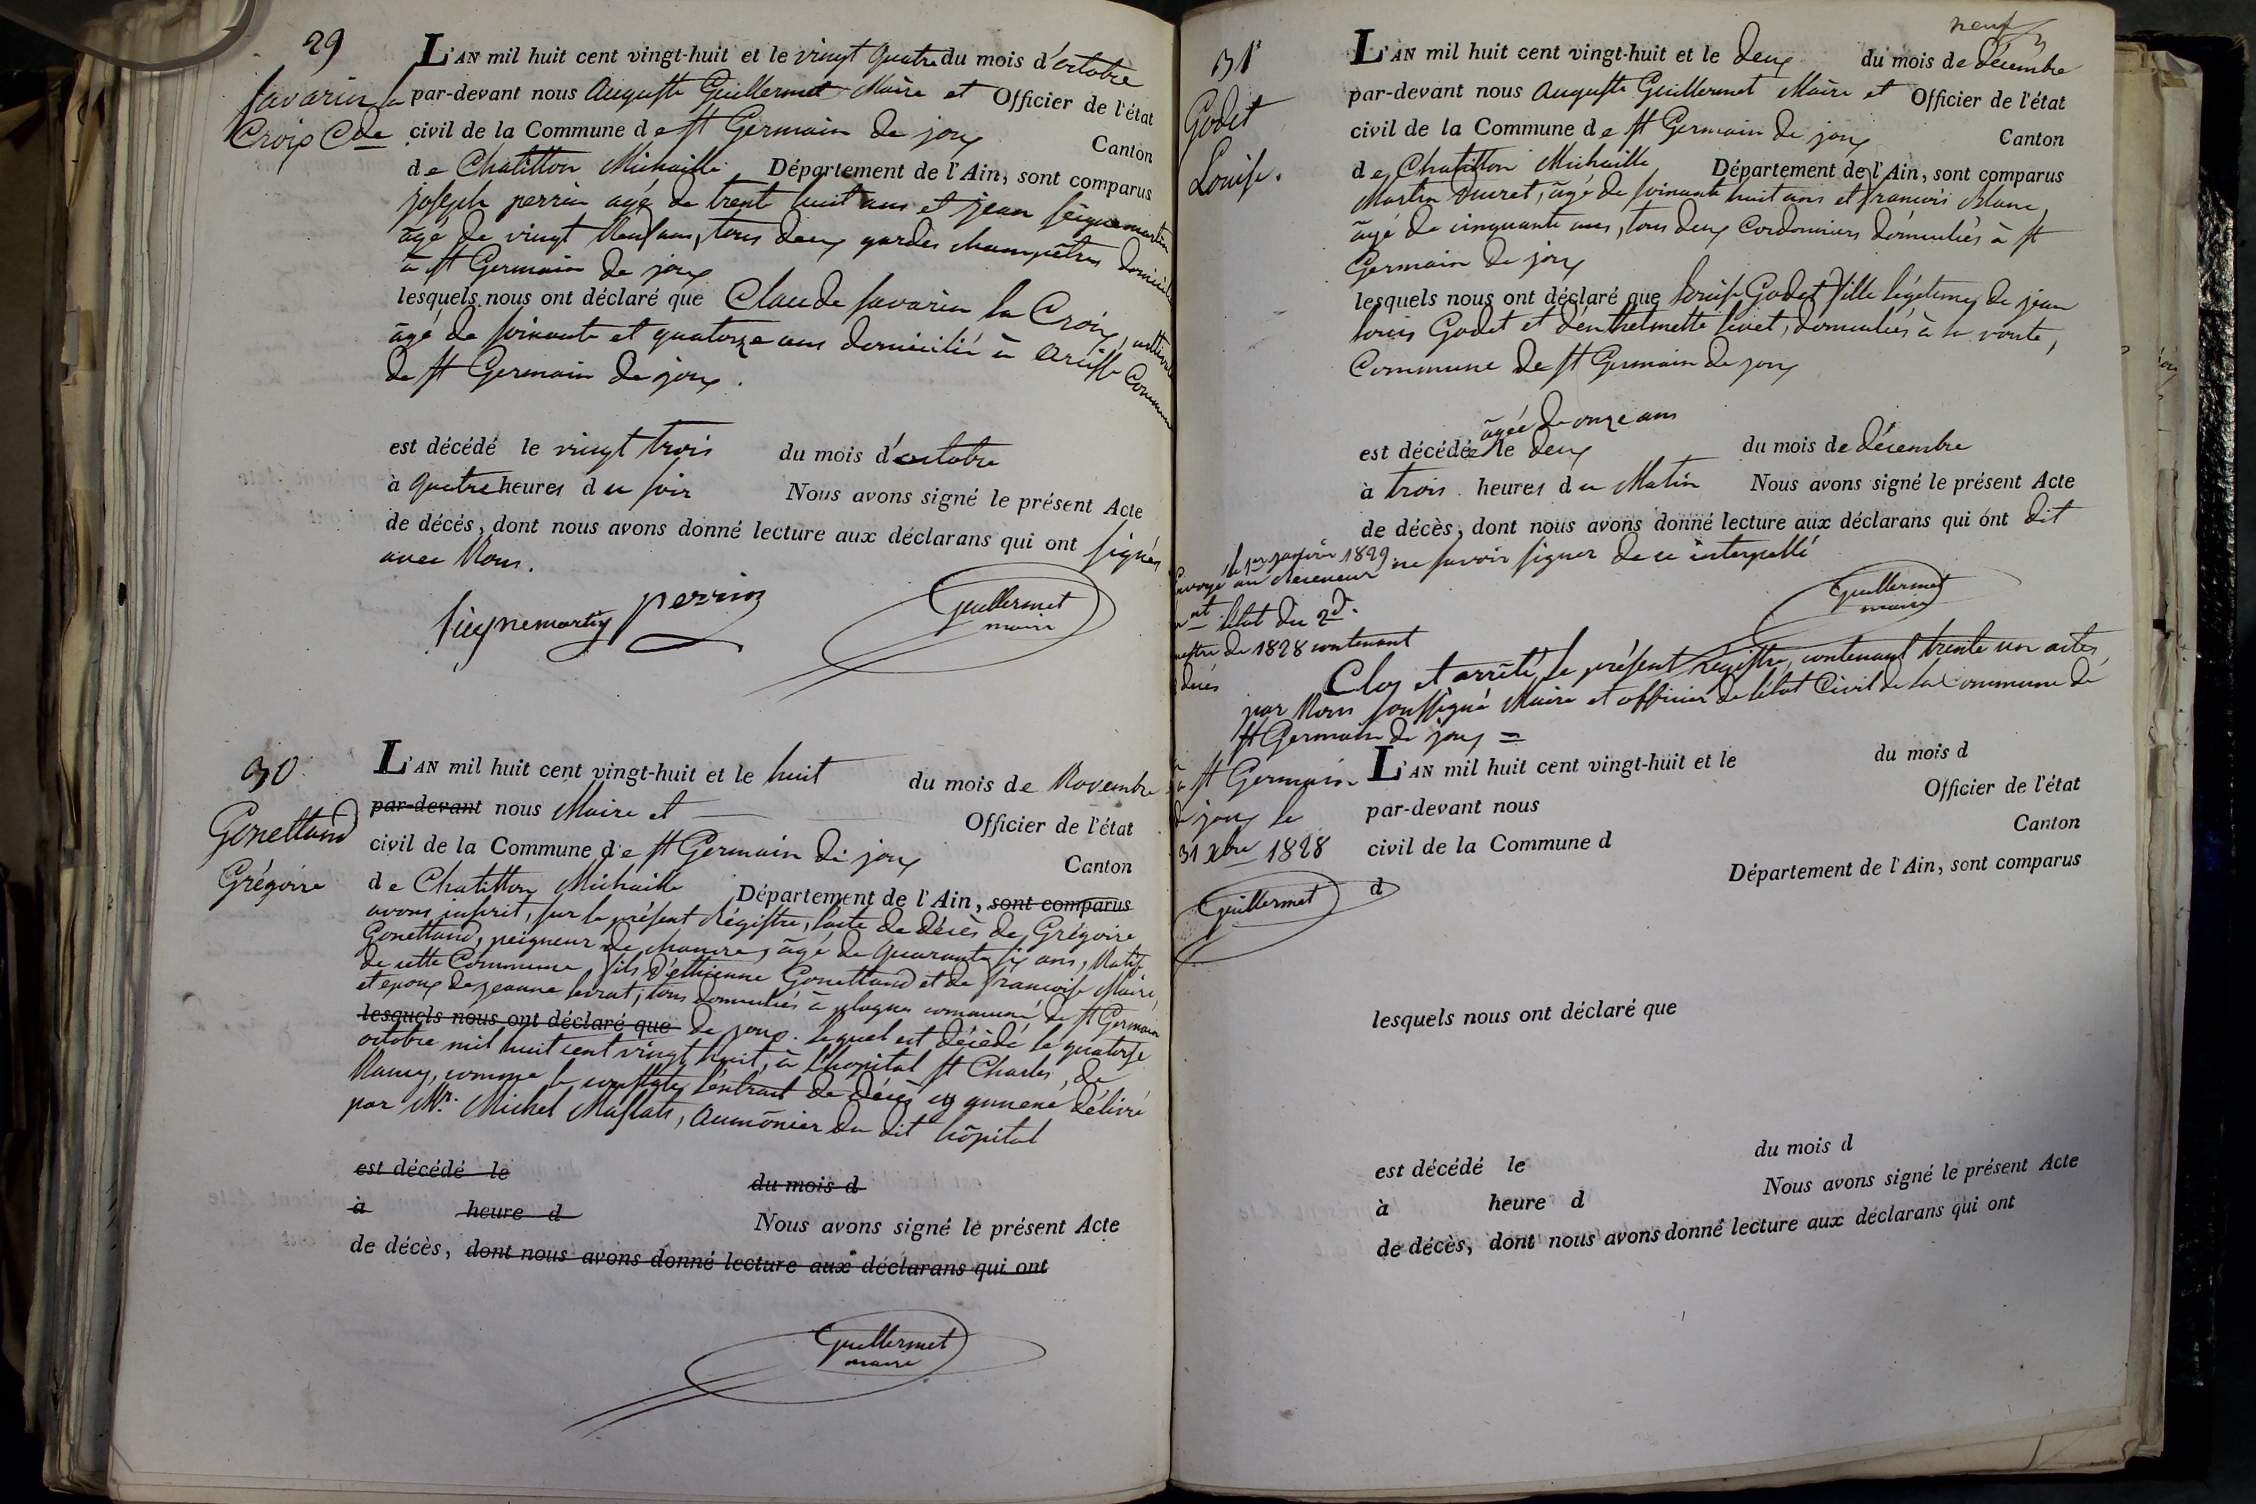 29
Savarin la
Croix Cde
L'AN mil huit cent vingt-huit et le vingt quatre du mois d'octobre
par-devant nous Auguste Guillermet Maire et Officier de l'état
civil de la Commune de St Germain de joux Canton
de Chatillon Michaille Département de l'Ain, sont comparus
joseph perrin agé de trent huit ans et jean Seignemartin
âgé de vingt neuf ans, tous deux gardes champêtres domiciliés
à St Germain de joux
lesquels nous ont déclaré que Claude Savarin la Croix, cultivateur
âgé de soixante et quatorze ans domicilié à
de St Germain de joux.
est décédé le vingt trois du mois d'octobre
à quatre heures du soir Nous avons signé le présent Acte
de décés, dont nous avons donné lecture aux déclarans qui ont signés
avec Nous.
Seignemartin perrin Guillermet
maire
30
Gonettand
Grégoire
L'AN mil huit cent vingt-huit et le huit du mois de Novembre
par-devant nous Maire et Officier de l'état
civil de la Commune de St Germain de joux Canton
de Chatillon Michaille Département de l'Ain, sont comparus
avons inscrit, sur le présent Régistre, l'acte de décès de Grégoire
Gonettand, peigneur de chanvre, âgé de quarante six ans, Natif
de cette Commune fils d'ethienne Gonettand et de francoise Maire,
et epoux de jeanne levrat, tous domiciliés à plagnes commune de St Germain
lesquels nous ont déclaré que de joux. lequel est décédé le quatorze
octobre mil huit cent vingt huit, à l'hopital St Charles, de
Nancy, comme le constate l'extrait de décès cy annexé délivré
par Mr. Michel, aumônier du dit hôpital
est décédé le du mois d
à heure d Nous avons signé le présent Acte
de décès, dont nous avons donné lecture aux déclarans qui ont
Guillermet
maire
neuf
31
Godet
Louise.
L'AN mil huit cent vingt-huit et le deux du mois de décembre
par-devant nous Auguste Guillermet Maire et Officier de l'état
civil de la Commune de St Germain de joux Canton
de Chatillon Michaille Département de l'Ain, sont comparus
Martin Ducret, âgé de soixante huit ans et francois Blanc,
âgé de cinquante ans, tous deux Cordonniers domiciliés à St
Germain de joux
lesquels nous ont déclaré que Louise Godet fille légitime de jean
louis Godet et d'enthelmette livet, domiciliés à la voute,
Commune de St Germain de joux
âgée de onze ans
est décédée le deux du mois de décembre
à trois heures du Matin Nous avons signé le présent Acte
de décès, dont nous avons donné lecture aux déclarans qui ont dit
ne savoir signer de ce interpellé
Guillermet
maire
le 1er janvier 1829
envoyé au Receveur
l'état du 2d.
de 1828 contenant
décès
Clos et arrêté le présent Régistre, contenant trente un actes
par Nous soussigné Maire et officier de l'état Civil de la Commune de
St Germain de joux =
à St Germain
de joux le
31 Xbre 1828
Guillermet
L'AN mil huit cent vingt-huit et le du mois d
par-devant nous Officier de l'état
civil de la Commune d Canton
d Département de l'Ain, sont comparus
lesquels nous ont déclaré que
est décédé le du mois d
à heure d Nous avons signé le présent Acte
de décès, dont nous avons donné lecture aux déclarans qui ont